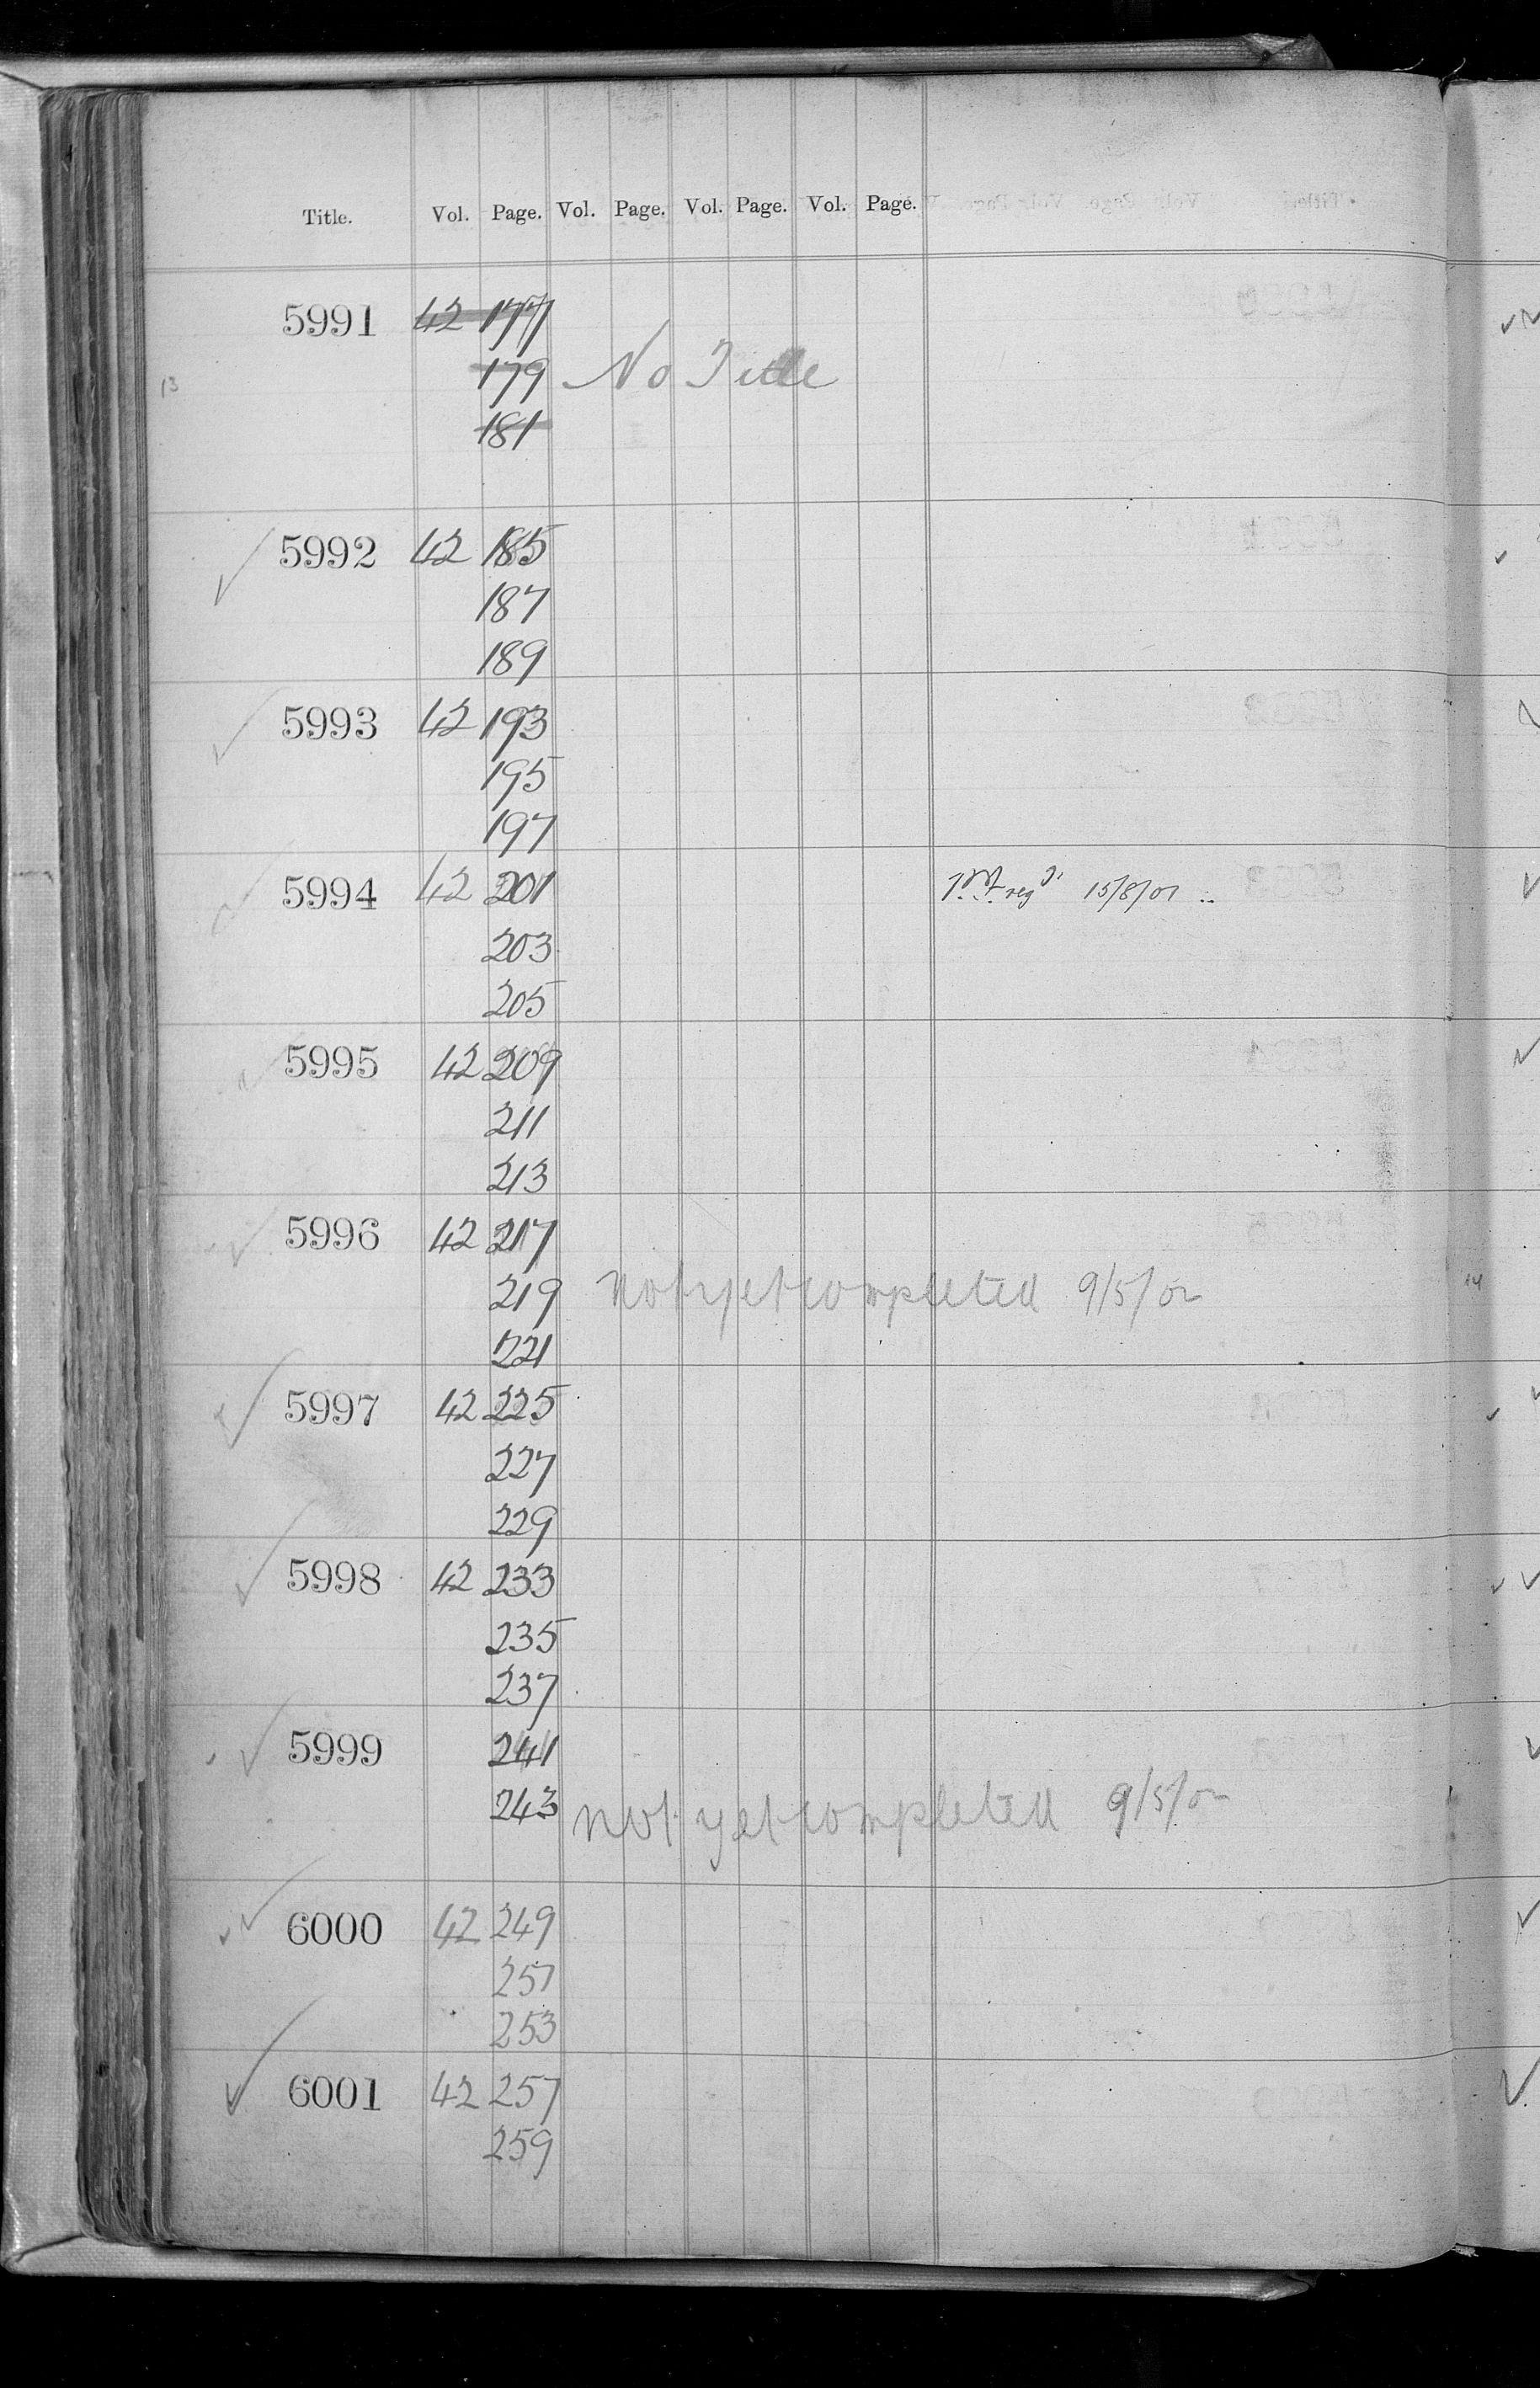 Title. Vol. Page. Vol. Page. Vol. Page. Vol. Page.
5991 42 177
13 179 No Title
181
5992 42 185
187
189
5993 42 193
195
197
5994 42 201 15/8/01
203
205
5995 42 209
211
213
5996 42 217
219 not yet completed 9/5/02
14
221
5997 42 225
227
229
5998 42 233
235
237
5999 241
243 not yet completed 9/5/02
6000 42 249
251
253
6001 42 257
259